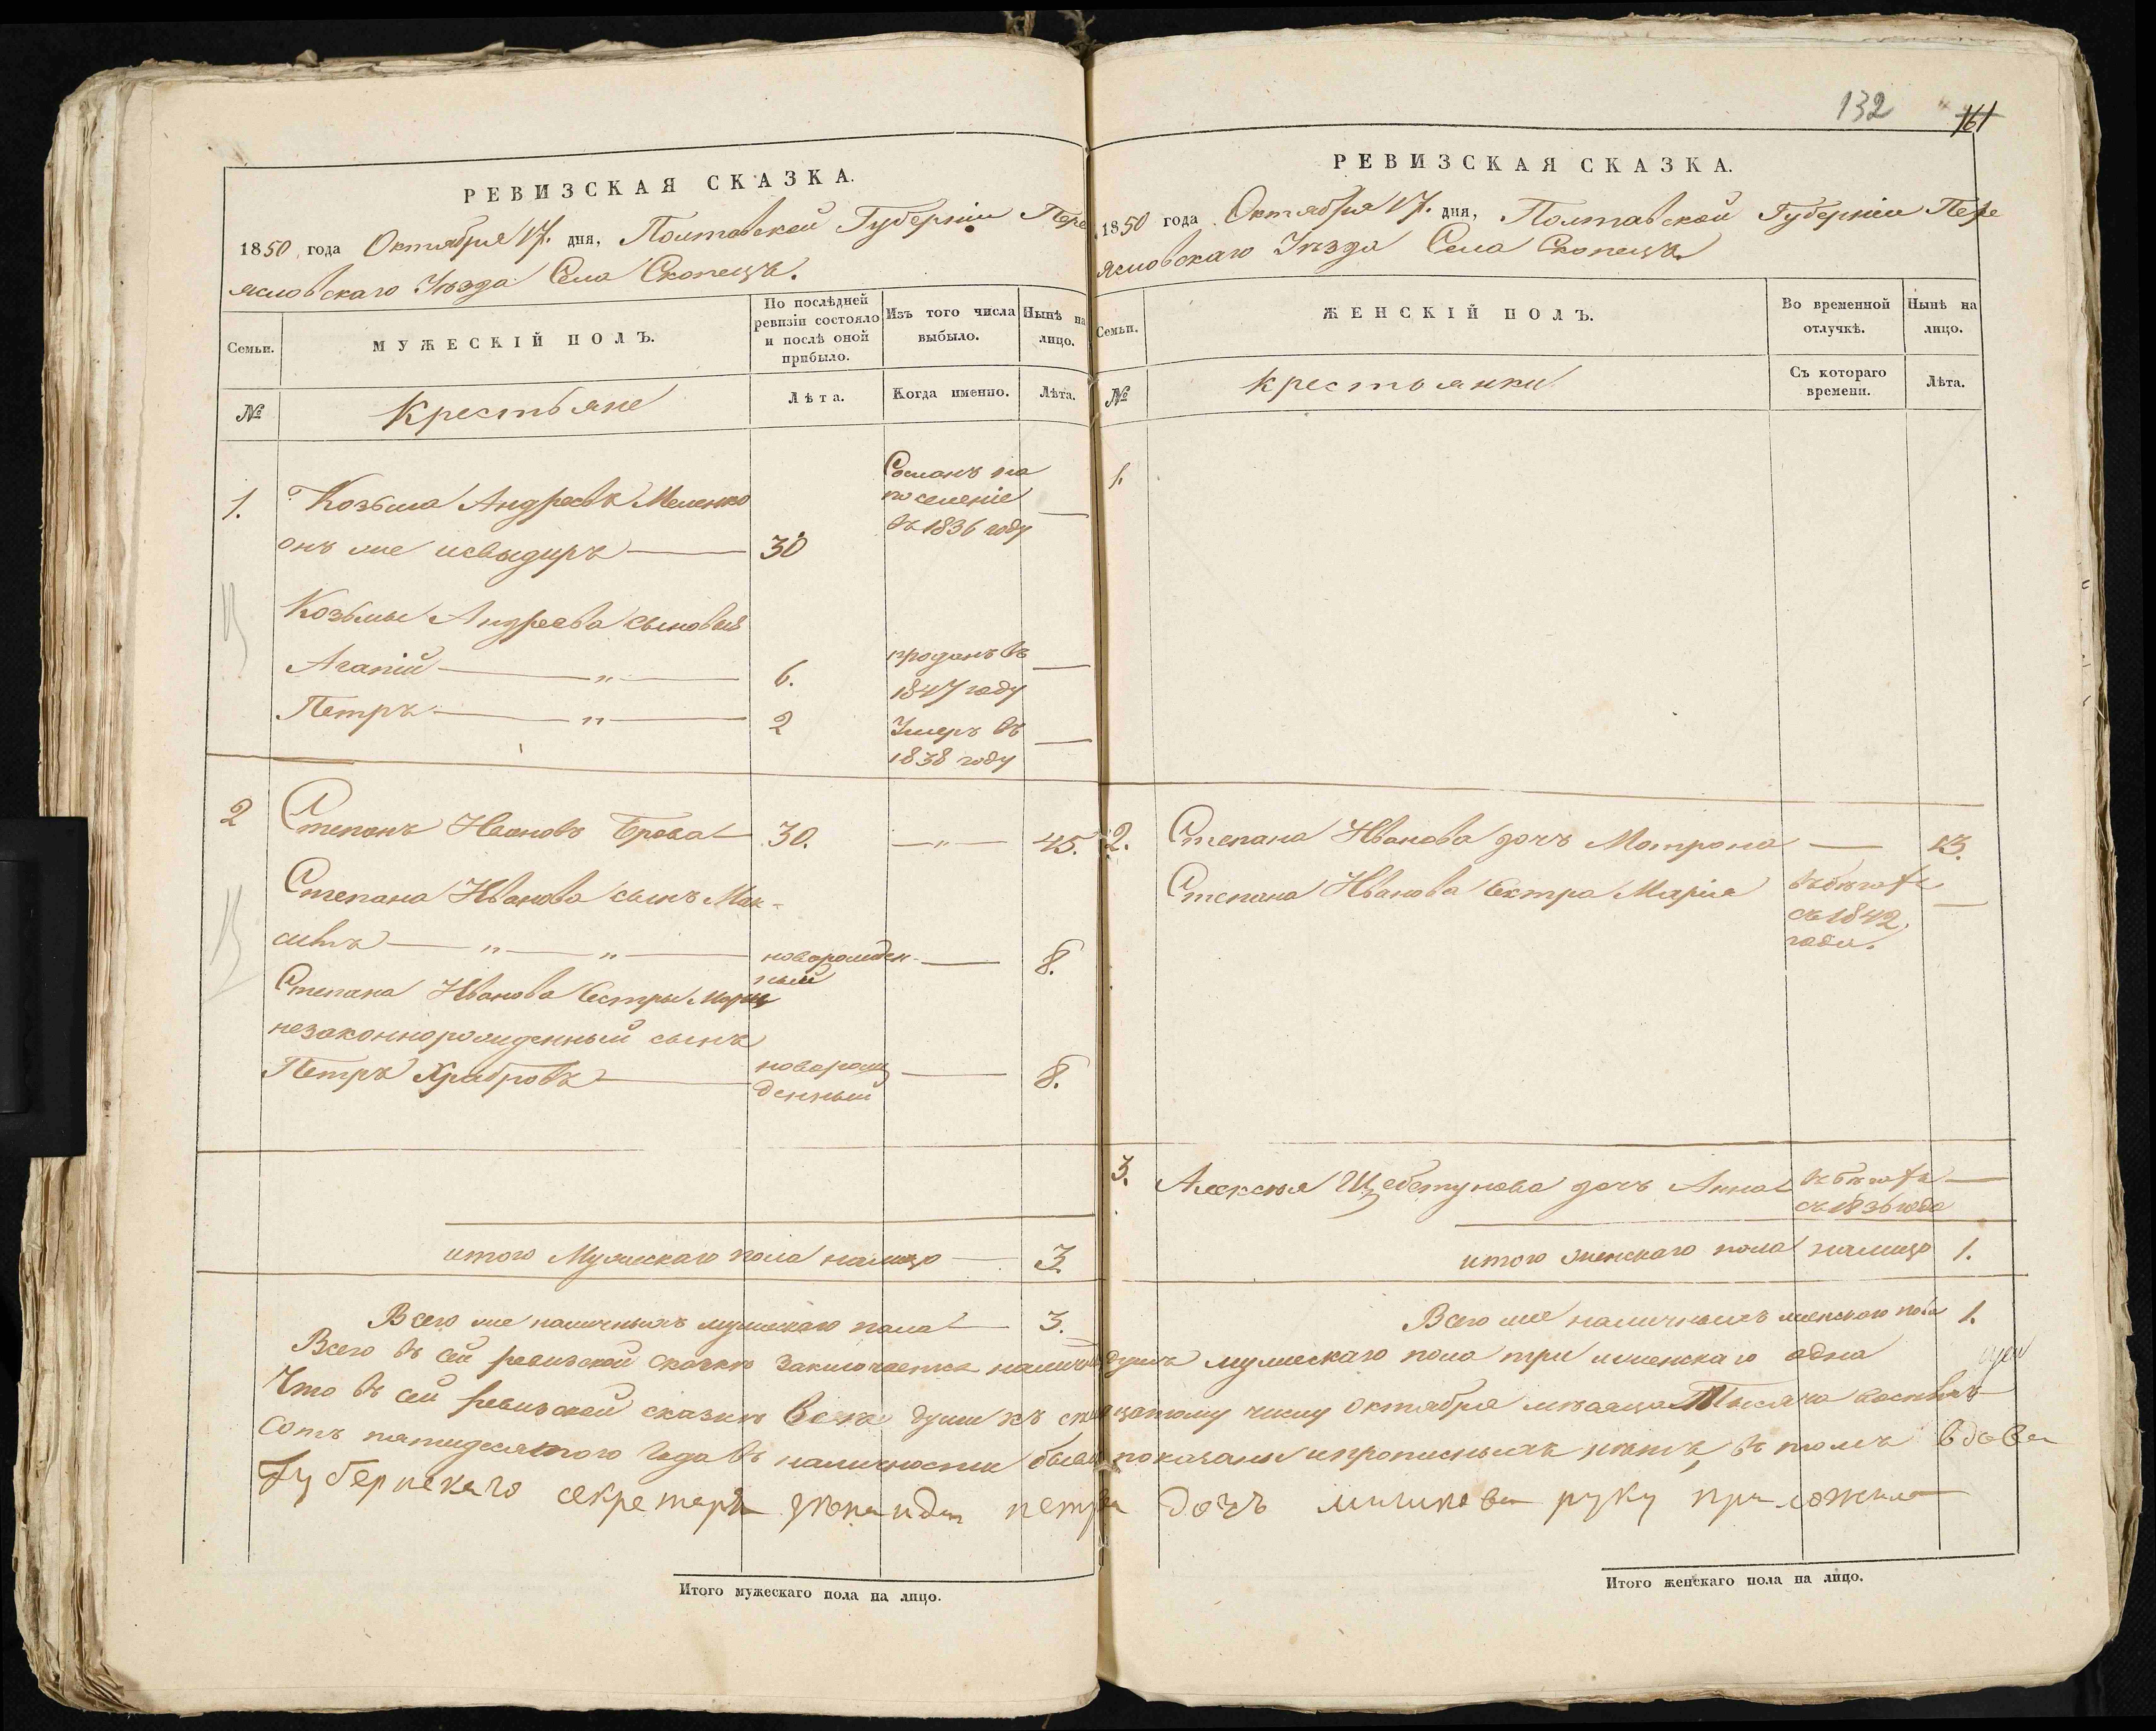 РЕВИЗСКАЯ СКАЗКА.
1850 года Октября 17. дня, Полтавской Губерніи Пере
яловскаго Уѣзда Села Скопецъ.
Семьи.
МУЖЕСКІЙ ПОЛЪ.
По послѣдней ревизіи состояло и послѣ оной прибыло.
Изъ того числа выбыло.
Нынѣ на лицо.
№
Крестьяне
Лѣта.
Когда именно.
Лѣта.
1.
Козьма Андреевъ Меленко
онъ же
30
Сосланъ на
поселеніе
въ 1836 году
Козьмы Андреева сыновья
Агапій — " —
6.
проданъ въ
1847 году
Петръ — " —
2
Умеръ въ
1838 году
2
Степанъ Ивановъ Брова
30.
— " —
45.
Степана Иванова сынъ Мак-
симъ — " — " —
новорожден-
ный
8.
Степана Иванова Сестры Маріи
незаконнорожденный сынъ
Петръ Храбровъ —
новорож
денный
8.
итого Мужескаго пола налицо — 3.
Всего же наличныхъ мужескаго пола — 3.
132
161
РЕВИЗСКАЯ СКАЗКА.
1850 года Октября 17. дня, Полтавской Губерніи Пере
яловскаго Уѣзда Села Скопецъ
Семьи.
ЖЕНСКІЙ ПОЛЪ.
Во временной отлучкѣ.
Нынѣ на лицо.
№
крестьянки
Съ котораго времени.
Лѣта.
1.
2.
Степана Иванова дочь Мотрона —
13.
Степана Иванова Сестра Марія
въ бѣгахъ
съ 1842.
года.
3.
Алексѣя Щебетунова дочь Анна
въ бѣгахъ
съ 1836 года
итого женскаго пола налицо 1.
Всего же наличныхъ женскаго пола 1.
Всего въ сей ревизской сказкѣ заключается наличныхъ душъ мужескаго пола три и женскаго одна
Что въ сей ревизской сказкѣ все души къ семнадцатому числу Октября мѣсяца Тысяча восемь
сотъ пятидесятого года въ наличности были показаны и прописныхъ нѣтъ, въ томъ вдова
Губернскаго секретаря петрова дочь руку приложила
Итого мужескаго пола на лицо.
Итого женскаго пола на лицо.